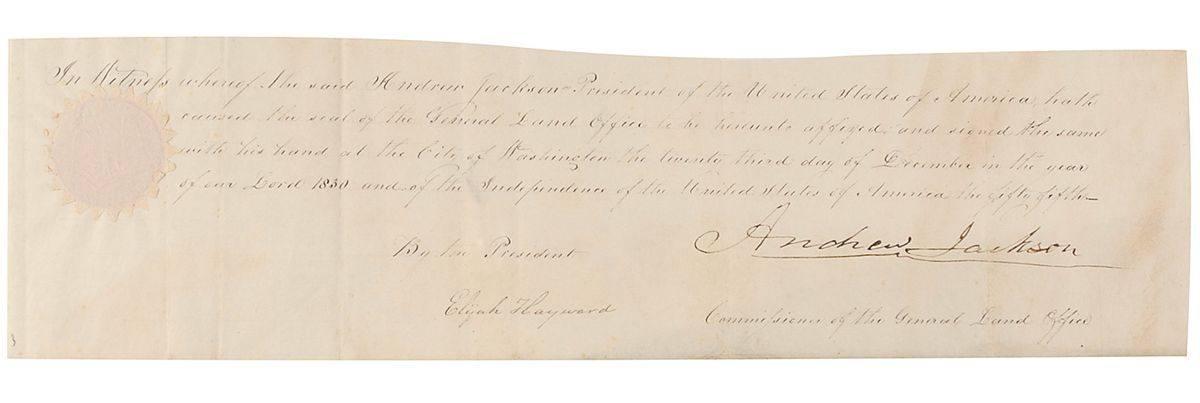 In Witness whereof the said Andrew Jackson President of the United States of America, hath
caused the seal of the General Land Office to be hereunto affixed, and signed the same
with his hand at the City of Washington the twenty third day of December in the year
of our Lord 1830 and of the Independence of the United States of America the fifty fifth—
Andrew Jackson
By the President
Elijah Hayward Commissioner of the General Land Office